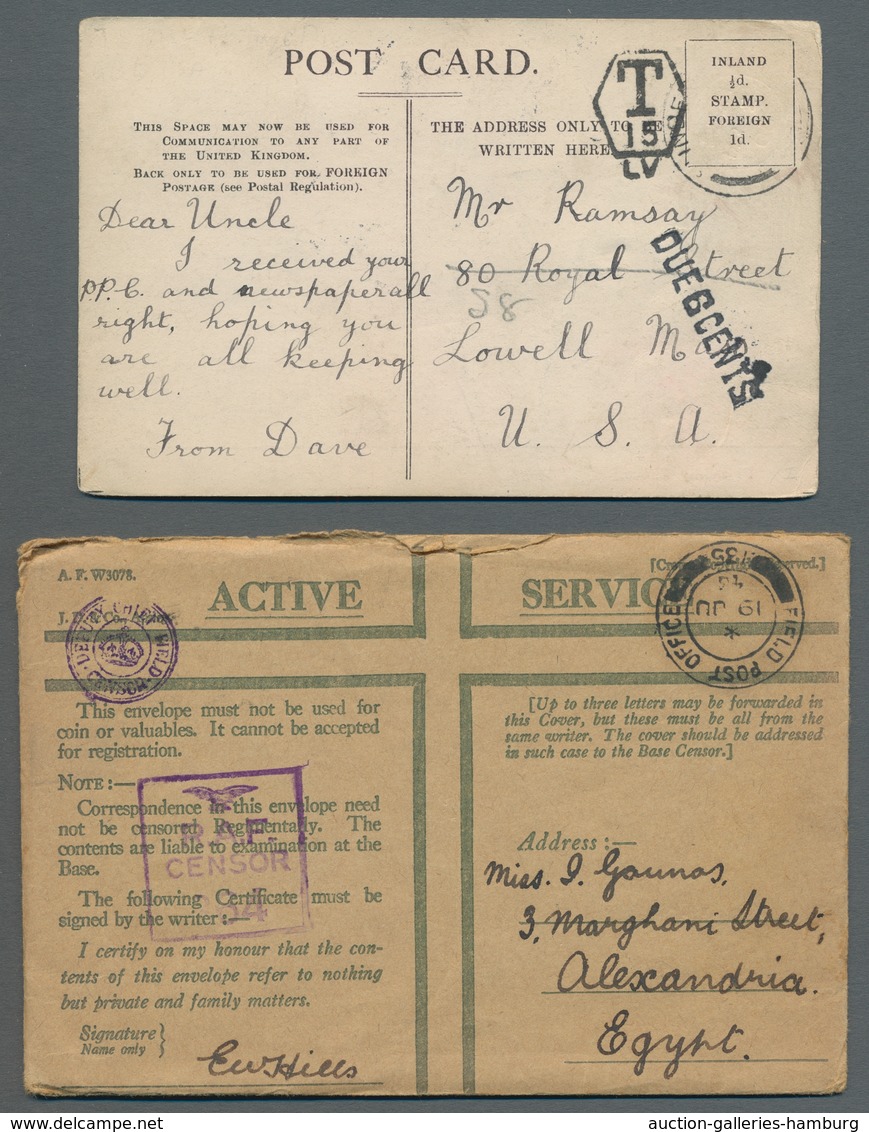 POST CARD.
THIS SPACE MAY NOW BE USED FOR
COMMUNICATION TO ANY PART OF
THE UNITED KINGDOM.
BACK ONLY TO BE USED FOR FOREIGN
POSTAGE (see Postal Regulation).
THE ADDRESS ONLY TO BE
WRITTEN HERE
INLAND
½d.
STAMP.
FOREIGN
1d.
T
15
LV
Dear Uncle
I received your
P.P.C. and newspaper all
right, hoping you
are all keeping
well.
From Dave
Mr Ramsay
80 Royal Street
58
Lowell Mass
U. S. A.
DUE 6 CENTS
A. F. W3078.
ACTIVE SERVICE
DEPUTY CHIEF FIELD CENSOR
FIELD POST OFFICE
19 JU
This envelope must not be used for
coin or valuables. It cannot be accepted
for registration.
NOTE:—
Correspondence in this envelope need
not be censored Regimentally. The
contents are liable to examination at the
Base.
The following Certificate must be
signed by the writer:—
I certify on my honour that the con-
tents of this envelope refer to nothing
but private and family matters.
Signature
Name only
EW Hills
R.A.F.
CENSOR
[Up to three letters may be forwarded in
this Cover, but these must be all from the
same writer. The cover should be addressed
in such case to the Base Censor.]
Address:—
Miss. I. Gounas,
3, Marghani Street,
Alexandria.
Egypt.
auction-galleries-hamburg